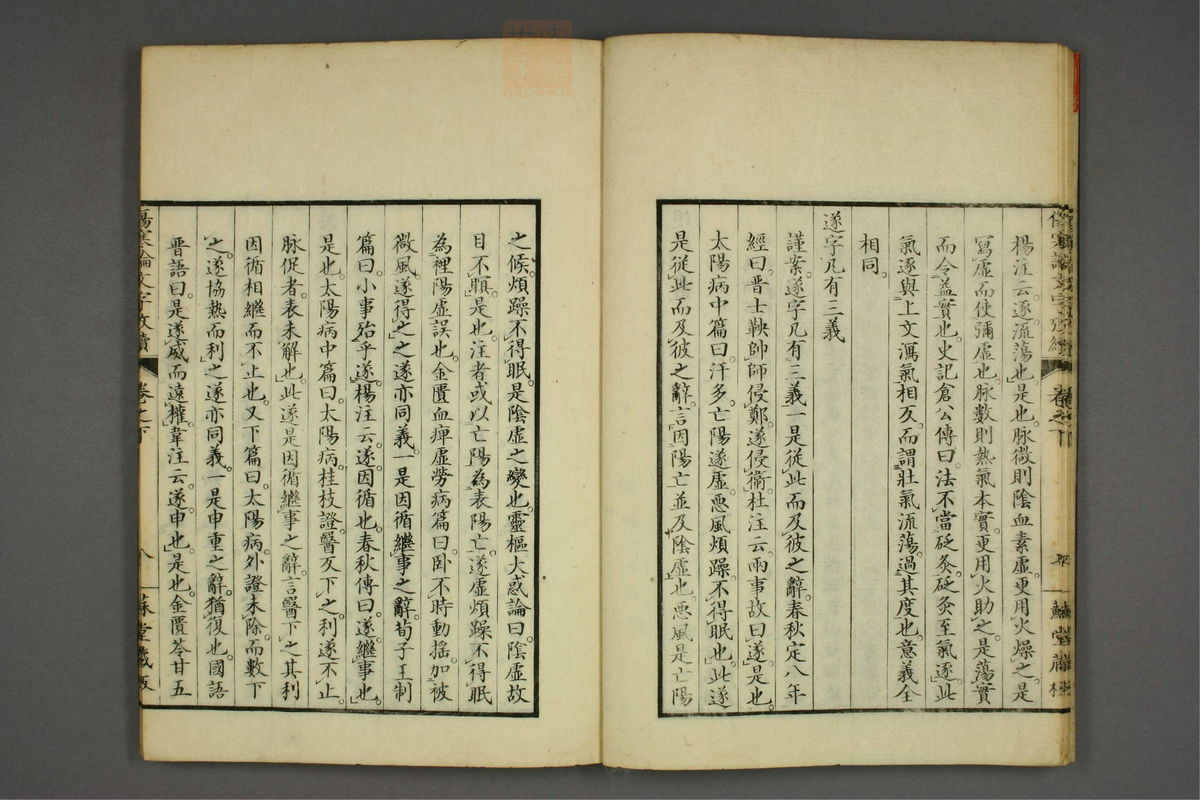 楊注云。逐流蕩也。是也。脉微則陰血素虛。更用火燥之。是
寫虛而使彌虛也。脉數則熱氣本實。更用火助之。是蕩實
而令益實也。史記倉公傳曰。法不當砭灸。砭灸至氣逐。此
氣逐與上文濁氣相反。而謂壯氣流蕩。過其度也。意義全
相同。
遂字凡有三義
謹案。遂字凡有三義。一是從此而及彼之辭。春秋定八年
經曰。晋士鞅帥師侵鄭。遂侵衛。杜注云。兩事故曰遂。是也。
太陽病中篇曰。汗多。亡陽遂虛。惡風煩躁。不得眠也。此遂
是從此而及彼之辭。言因陽亡並及陰虛也。惡風是亡陽
之候。煩躁不得眠。是陰虛之變也。靈樞大惑論曰。陰虛故
目不瞑。是也。注者或以亡陽為表陽亡。遂虛煩躁不得眠
為裡陽虛誤也。金匱血痺虛勞病篇曰。卧不時動搖。加被
微風。遂得之。之遂亦同義。一是因循繼事之辭。荀子王制
篇曰。小事殆乎遂。楊注云。遂。因循也。春秋傳曰。遂。繼事也。
是也。太陽病中篇曰。太陽病。桂枝證。醫反下之。利遂不止。
脉促者。表未解也。此遂是因循繼事之辭。言醫下之。其利
因循相繼而不止也。又下篇曰。太陽病。外證未除。而數下
之。遂協熱而利之遂亦同義。一是申重之辭。猶復也。國語
晋語曰。是遂威而遠權。韋注云。遂。申也。是也。金匱苓甘五
傷寒論文字攷續
卷之下
八